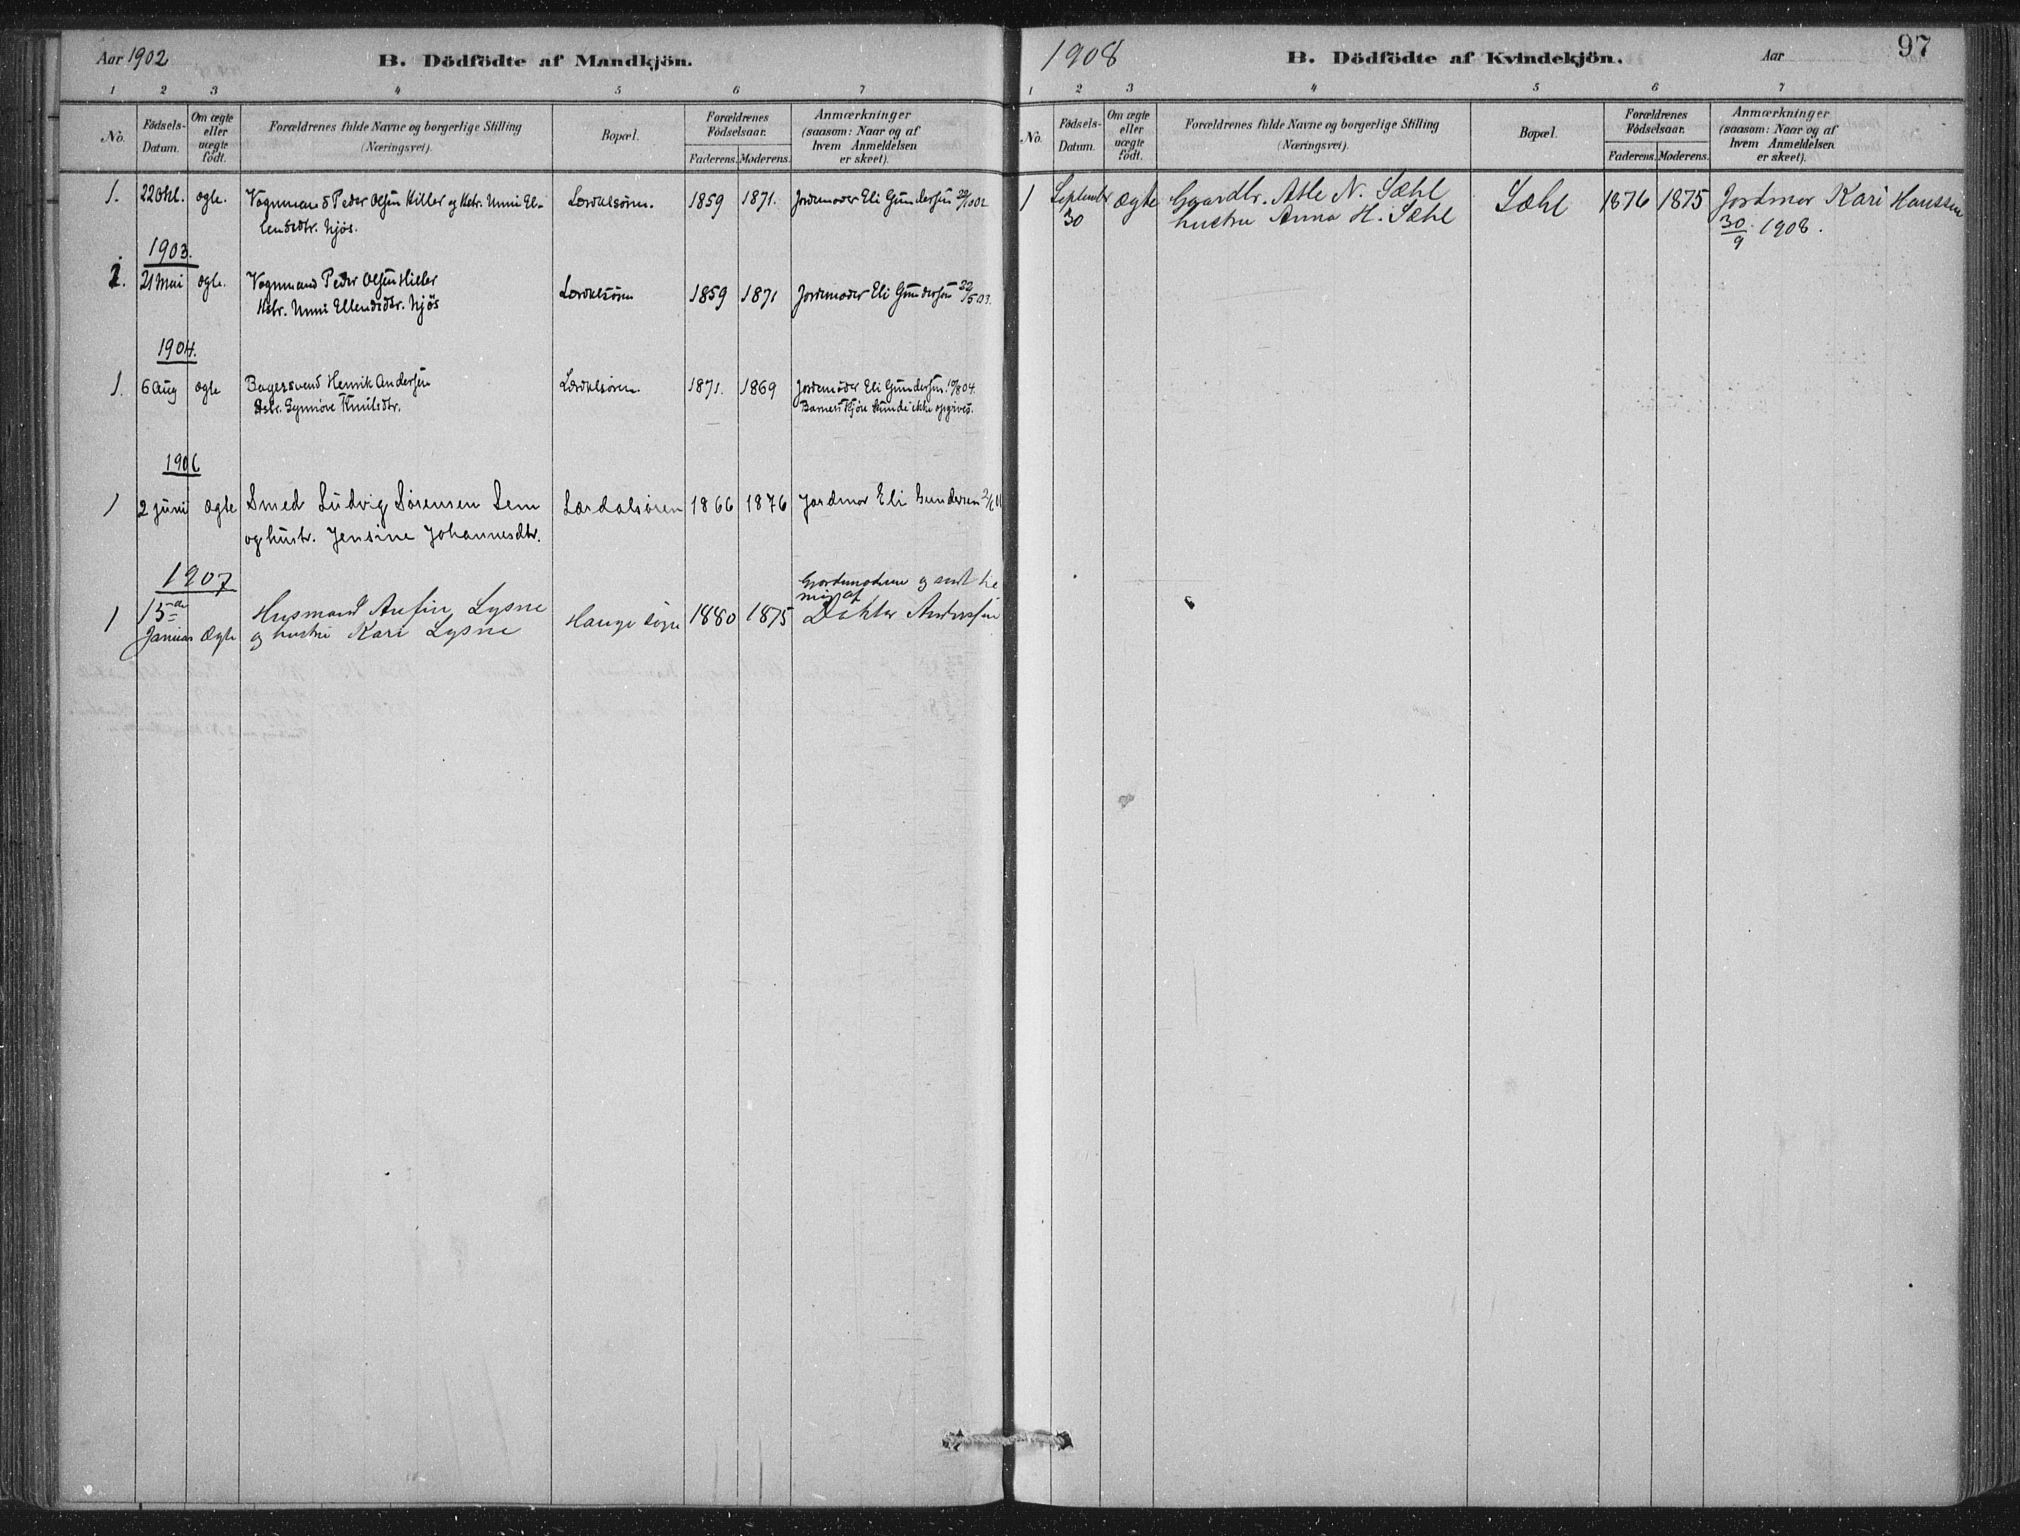 Aar 1902
B. Dödfödte af Mandkjön.
1 2 3 4 5 6 7
No.
Födsels-
Datum.
Om ægte
eller
uægte
födt.
Forældrenes fulde Navne og borgerlige Stilling
(Næringsvei).
Bopæl.
Forældrenes
Födselsaar.
Faderens. Moderens.
Anmærkninger
(saasom: Naar og af
hvem Anmeldelsen
er skeet).
1. 22 Okt. ægte. Vognmand Peder Olsen Hiller og Hstr. Unni El- Lærdalsøren. 1859 1871. Jordemoder Eli Gundersen 22/10 02
lendsdtr. Njøs.
1903.
1. 21 Mai ægte. Vognmand Peder Olsen Hiller Lærdalsøren 1859 1871 Jordemoder Eli Gundersen 22/5 03.
Hstr. Unni Ellendsdtr. Njøs
1904.
1. 6 Aug ægte Bagersvend Henrik Andersen Lærdalsøren. 1871. 1869 Jordemoder Eli Gundersen 10/8 04.
Hstr. Synnøve Knutsdtr. Barnets Kjøn kunde ikke opgives.
1906
1 2 juni Ægte Smed Ludvig Sørensen Sem Lærdalsøren 1866 1876 Jordmor Eli Gundersen
og hustr. Jensine Johannesdtr.
1907
1 15de Husmand Anfin Lysne Hauge sogn 1880 1875 Doktor Anderssen
Januar Ægte og hustru Kari Lysne
1908
B. Dödfödte af Kvindekjön.
Aar
97
1 2 3 4 5 6 7
No.
Födsels-
Datum.
Om ægte
eller
uægte
födt.
Forældrenes fulde Navne og borgerlige Stilling
(Næringsvei).
Bopæl.
Forældrenes
Födselsaar.
Faderens. Moderens.
Anmærkninger
(saasom: Naar og af
hvem Anmeldelsen
er skeet).
1 September Ægte Gaardbr. Atle N. Sæhl Sæhl 1876 1875 Jordmor Kari Hanssen
30 hustru Anna H. Sæhl 30/9 1908.